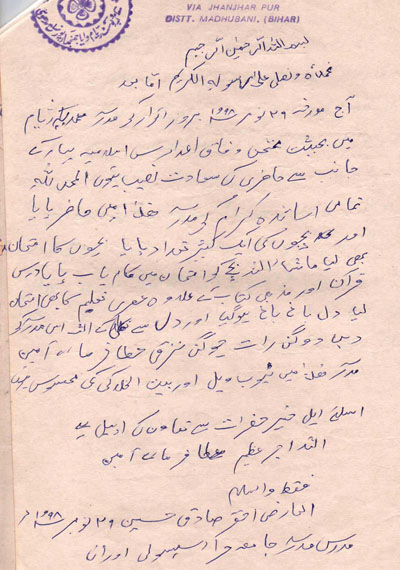 VIA JHANJHAR PUR
DISTT. MADHUBANI, (BIHAR)
بسم اللہ الرحمٰن الرحیم
نحمدہ و نصلی علیٰ رسولہ الکریم اما بعد
آج مورخہ ۲۹ نومبر ۱۹۹۸ بروز اتوار کو مدرسہ
میں بحیثیت ممتحن وفاق المدارس اسلامیہ بہار کے
جانب سے حاضری کی سعادت نصیب ہوئی الحمد للہ
تمامی اساتذہ کرام کو مدرسہ ھذا میں حاضر پایا
اور بچوں کی ایک کثیر تعداد پایا بچوں کا امتحان
بھی لیا ماشاء اللہ بچے کو امتحان میں کامیاب پایا درس
قرآن اور مذہبی کتاب کے علاوہ عصری تعلیم کا بھی امتحان
لیا دل باغ باغ ہو گیا اور دل سے اللہ اس مدرسہ کو
دن دوگنی رات چوگنی ترقی عطا فرمائے آمین
مدرسہ ھذا میں ٹیوب ویل اور بیت الخلا کی کمی محسوس
اسلئے اہل خیر حضرات سے تعاون کی اپیل ہے
اللہ اجر عظیم عطا فرمائے آمین
فقط والسلام
العارض احقر صادق حسین ۲۹ نومبر ۱۹۹۸
مدرس مدرسہ جامعہ